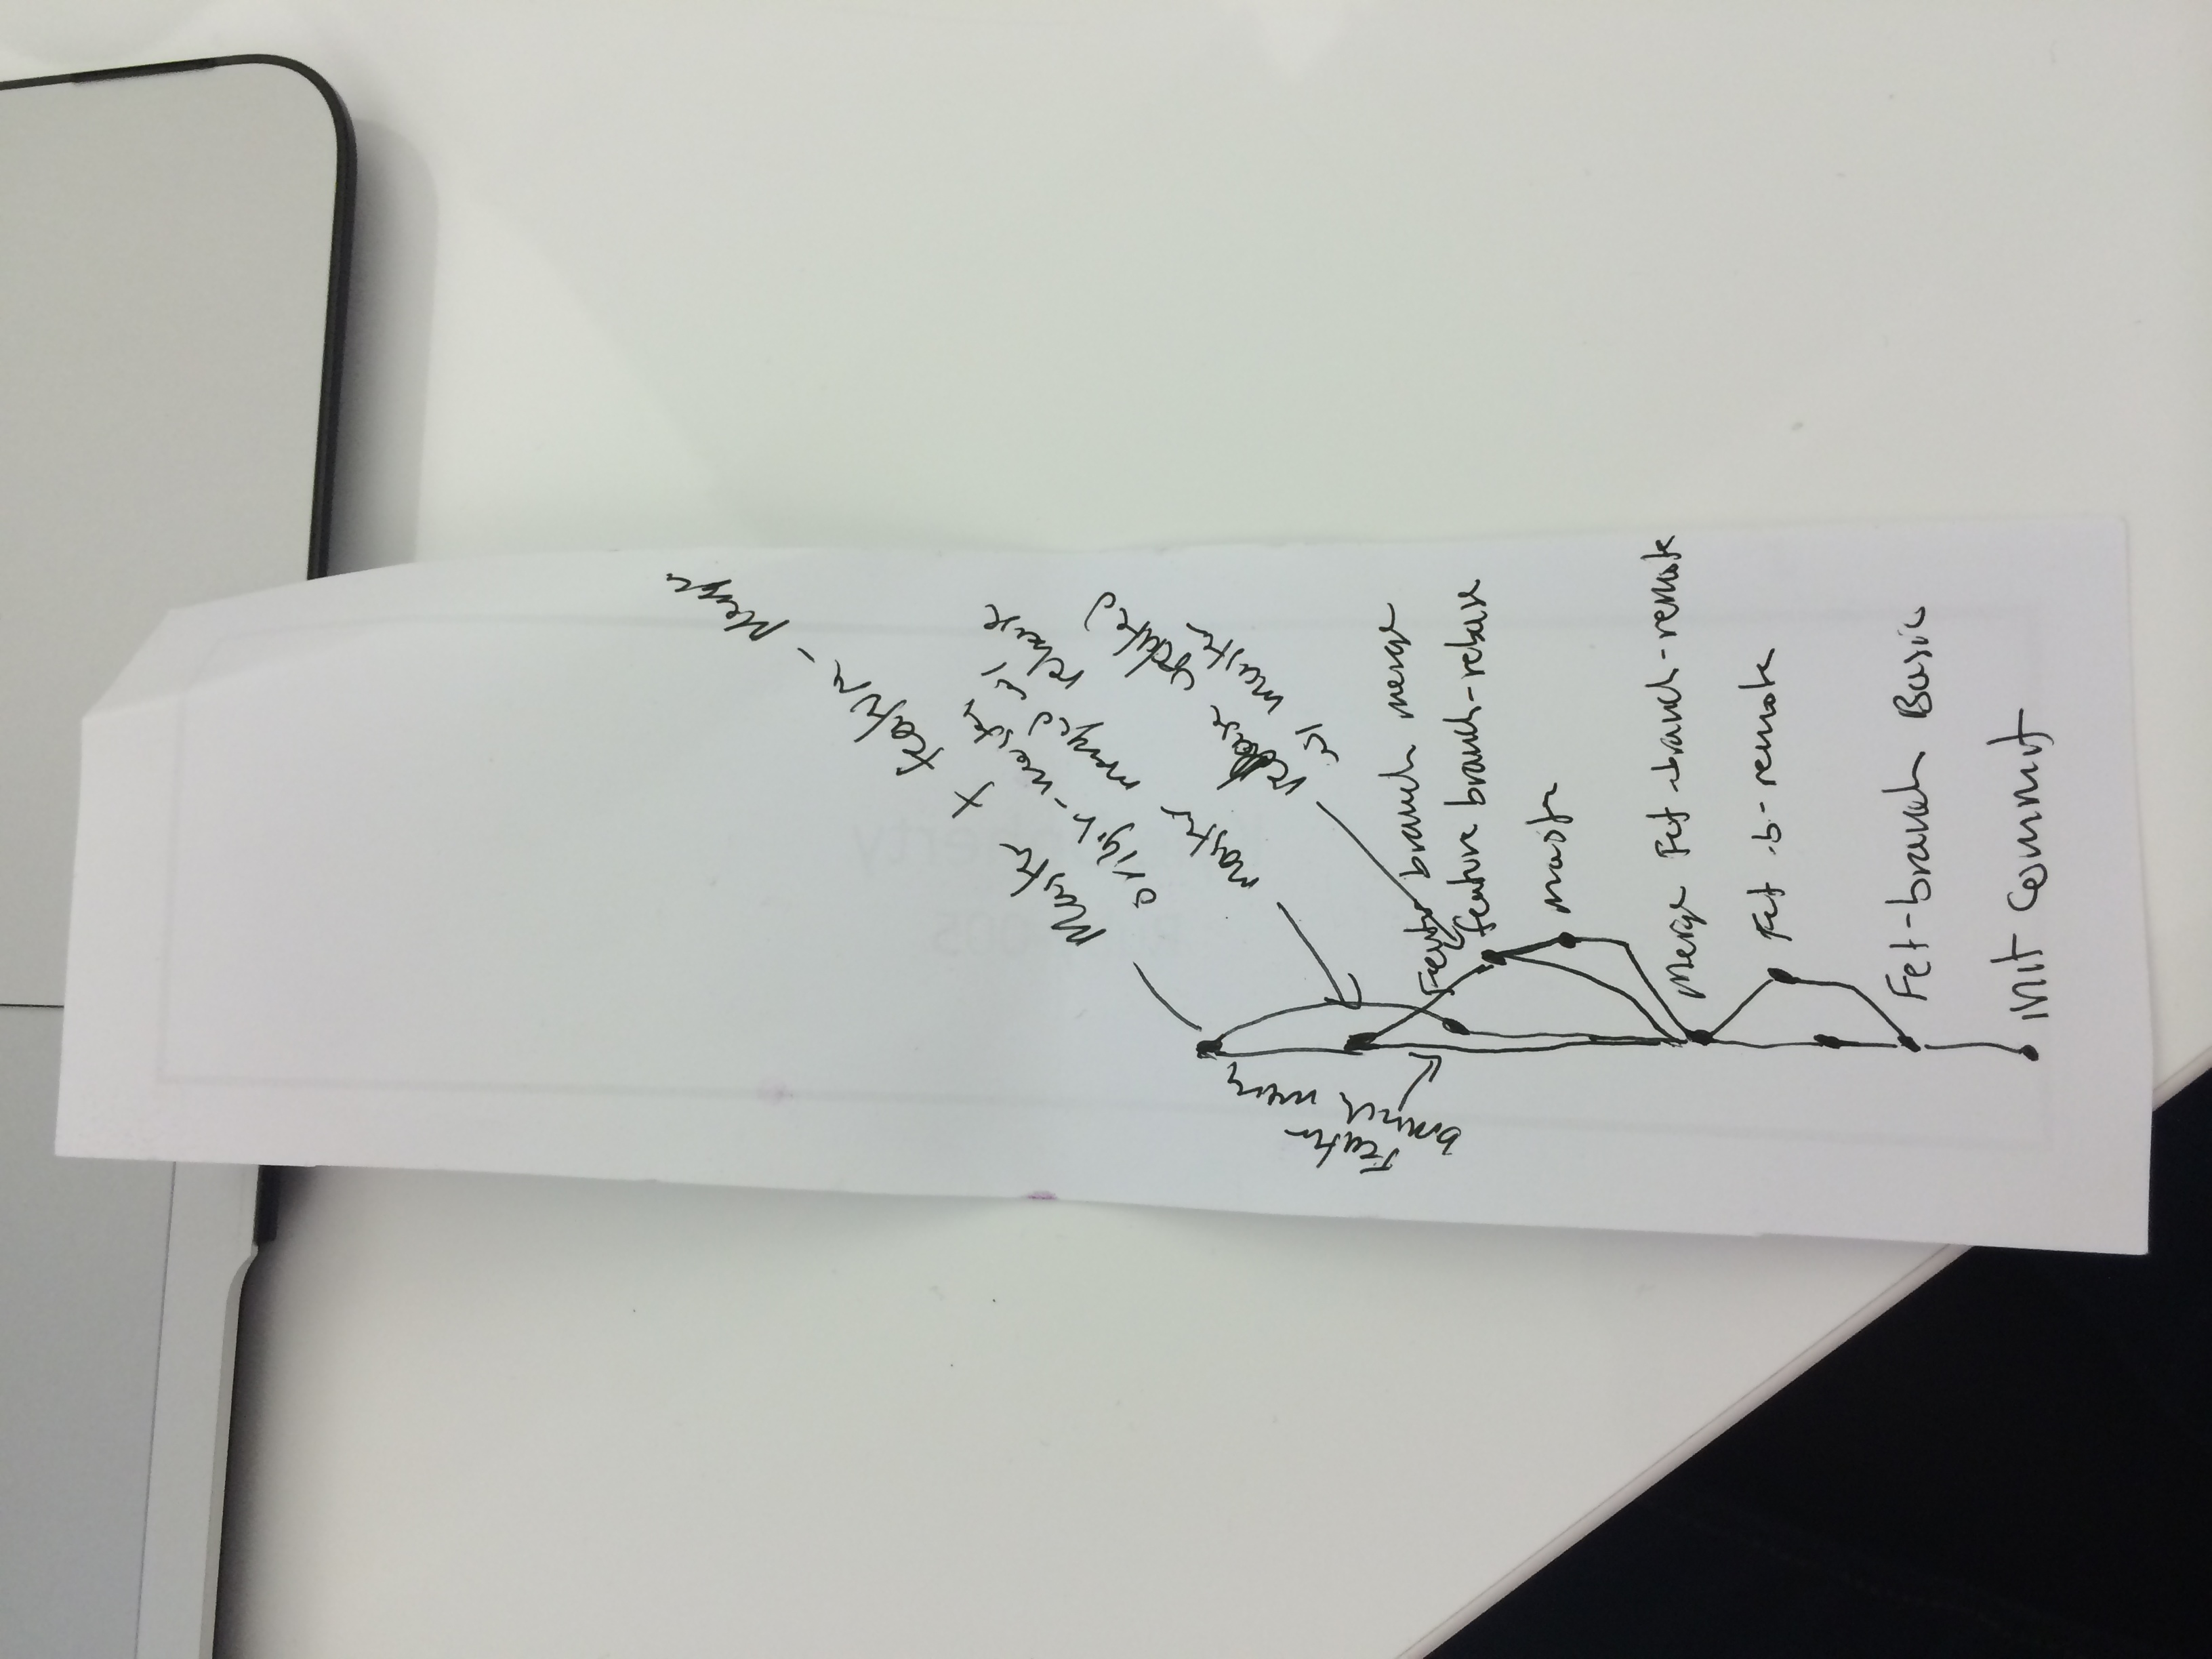 Master + feature - Merge
origin-master
master merged w/
rebase
rebase updated
w/ master
Featur
branch merg
Featur branch merge
feature branch-rebase
master
Merge Fet-branch-remote
Fet-b-remote
Fet-branch Basic
init commit